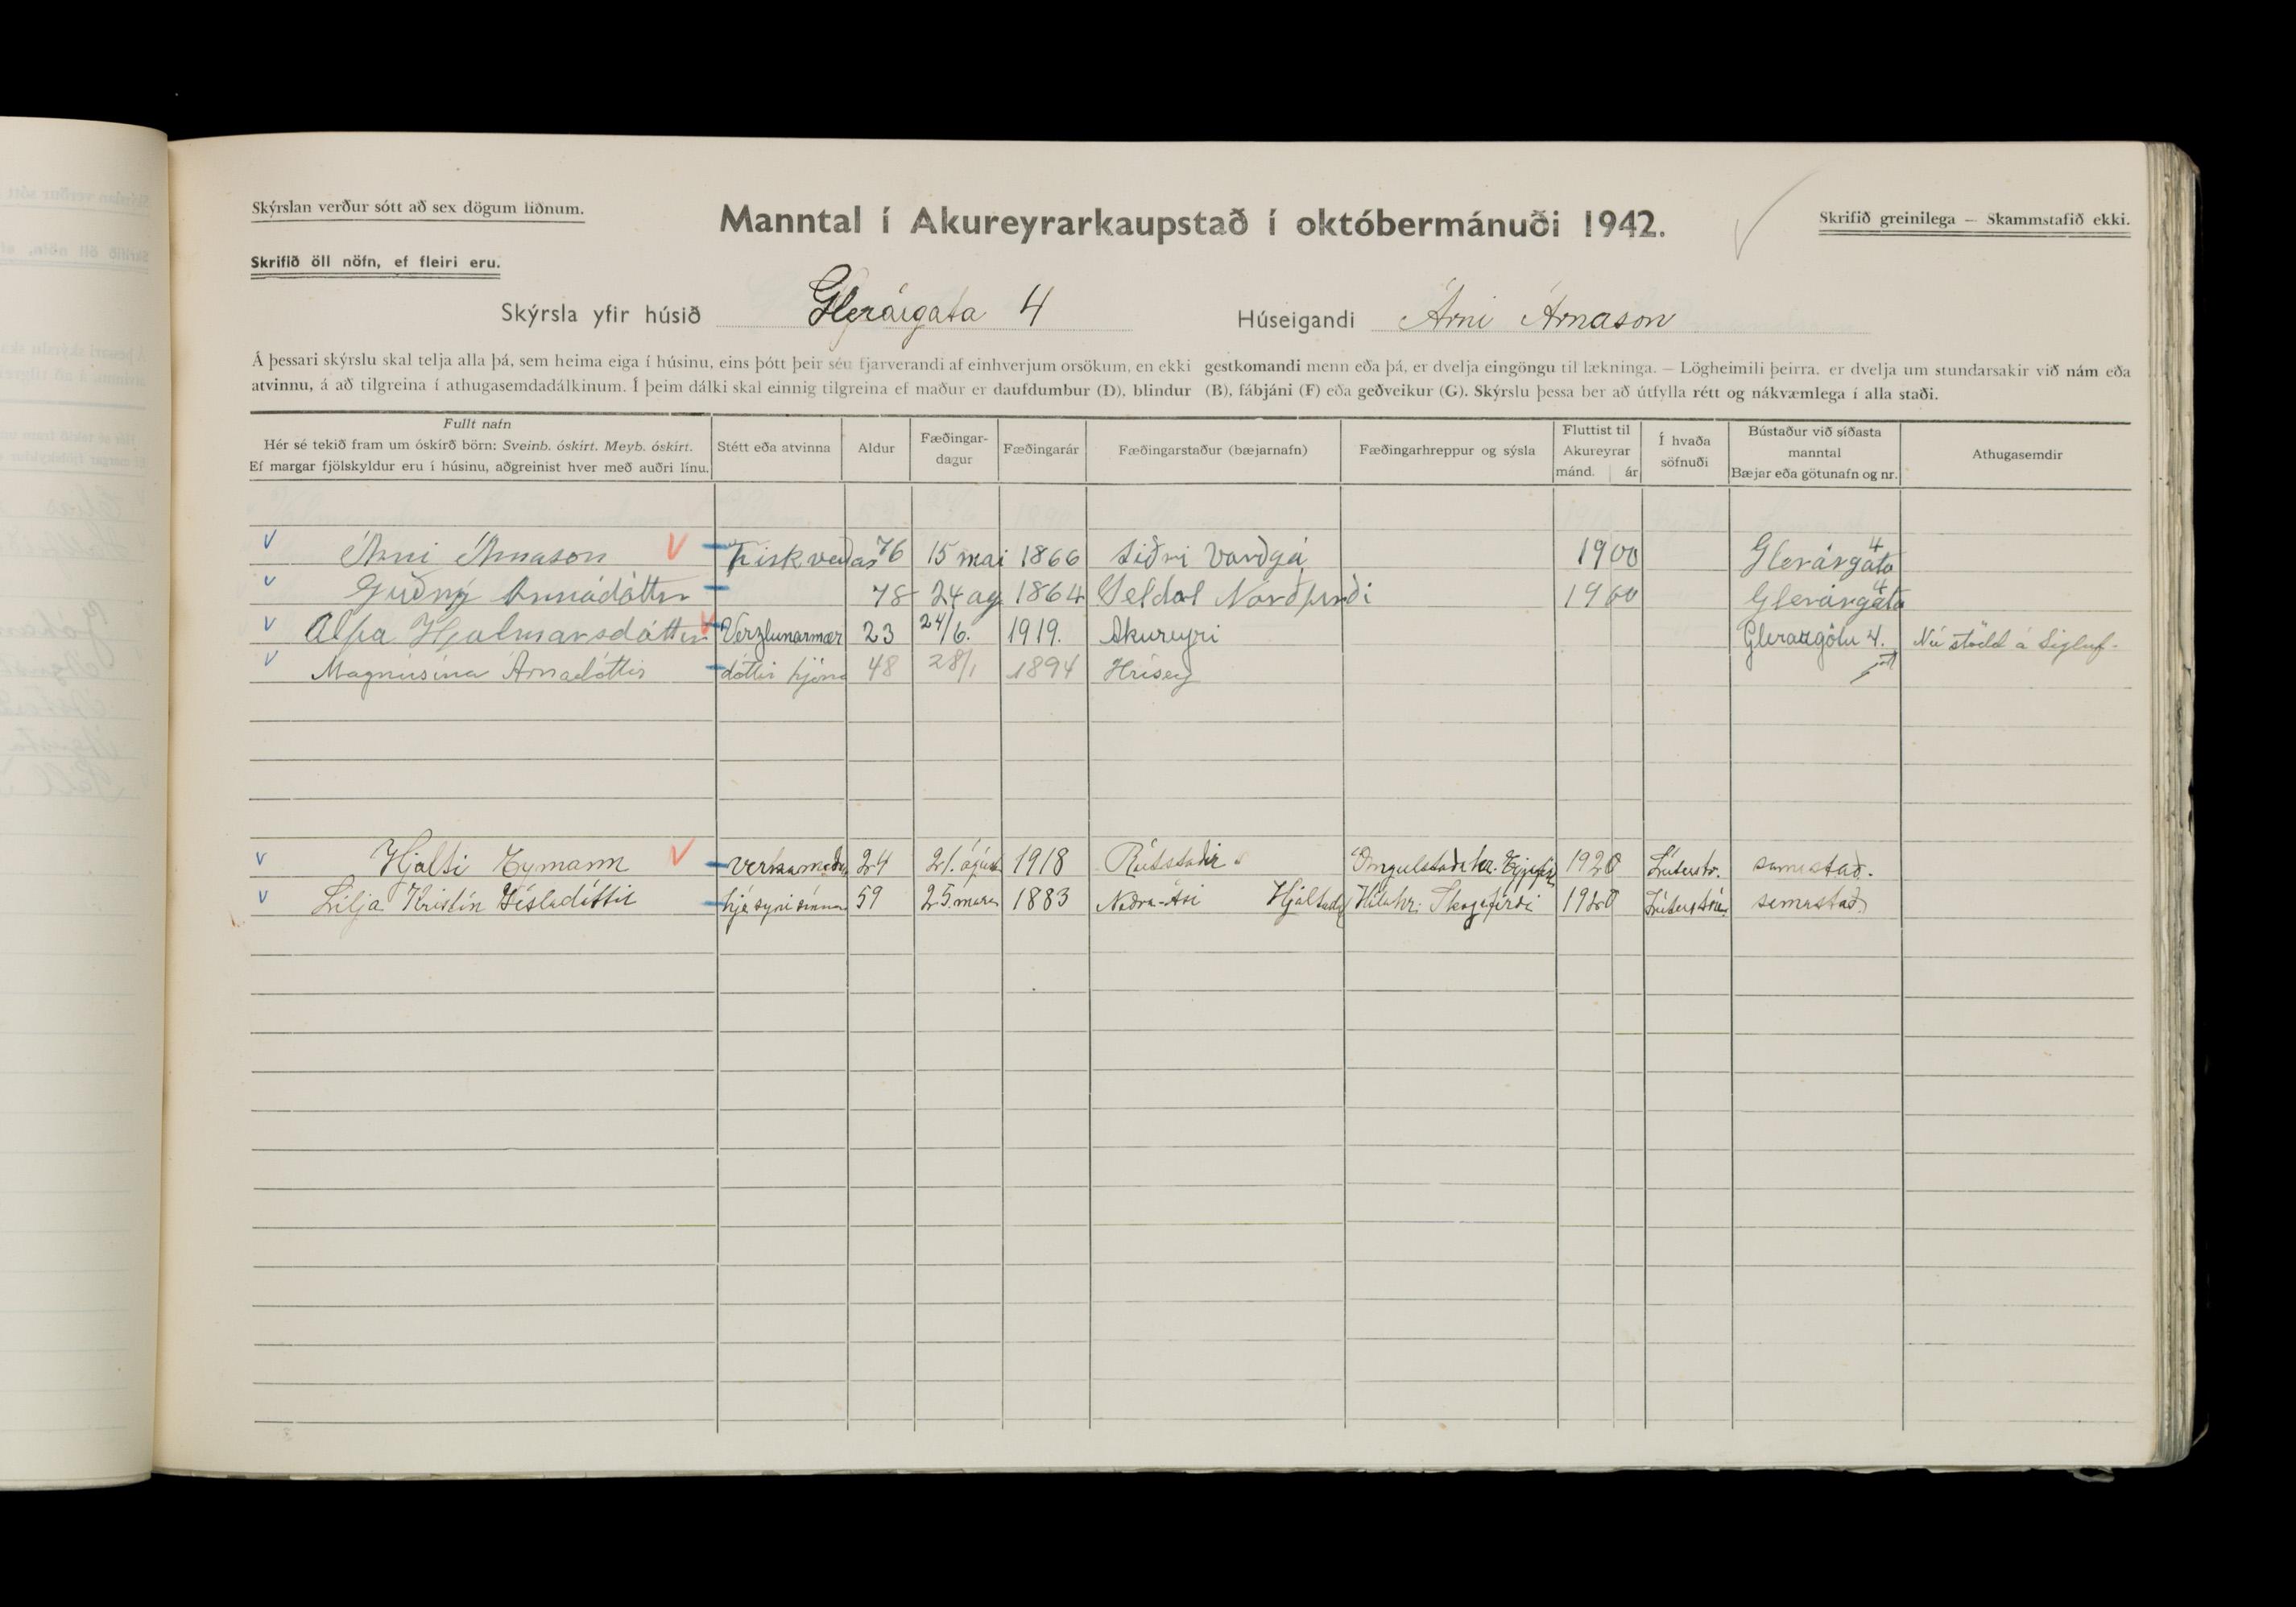 Skýrslan verður sótt að sex dögum liðnum.
Manntal í Akureyrarkaupstað í októbermánuði 1942.
Skrifið greinilega — Skammstafið ekki.
Skrifið öll nöfn, ef fleiri eru.
Skýrsla yfir húsið Glerárgata 4 Húseigandi Árni Árnason
Á þessari skýrslu skal telja alla þá, sem heima eiga í húsinu, eins þótt þeir séu fjarverandi af einhverjum orsökum, en ekki gestkomandi menn eða þá, er dvelja eingöngu til lækninga. — Lögheimili þeirra, er dvelja um stundarsakir við nám eða
atvinnu, á að tilgreina í athugasemdadálkinum. Í þeim dálki skal einnig tilgreina ef maður er daufdumbur (D), blindur (B), fábjáni (F) eða geðveikur (G). Skýrslu þessa ber að útfylla rétt og nákvæmlega í alla staði.
Fullt nafn
Hér sé tekið fram um óskírð börn: Sveinb. óskírt. Meyb. óskírt.
Ef margar fjölskyldur eru í húsinu, aðgreinist hver með auðri línu.
Stétt eða atvinna
Aldur
Fæðingar-
dagur
Fæðingarár
Fæðingarstaður (bæjarnafn)
Fæðingarhreppur og sýsla
Fluttist til
Akureyrar
mánd. ár
Í hvaða
söfnuði
Bústaður við síðasta
manntal
Bæjar eða götunafn og nr.
Athugasemdir
v Árni Árnason V 76 15 mai 1866 Siðri Varðgá 1900 Glerárgata 4
v Guðný 78 24 ag 1864 Seldal Norðfirði 1900 Glerárgata 4
v Alfa Hjalmarsdóttir V Verzlunarmær 23 24/6. 1919. Akureyri Glerargötu 4. Nú stödd á Sigluf.
v Magnúsína Árnadóttir dóttir hjóna 48 28/1 1894 Hrísey
v Hjalti Eymann V verkamaður 24 21. ágúst 1918 Rútsstaðir Öngulstaðahr. Eyjafj. 1920 Lúterstr. samastað.
v Lilja Kristín Gísladóttir hjá syni sínum 59 25. mars 1883 Neðra-Ási Hjaltadal Hólahr. Skagafirði 1920 samastað